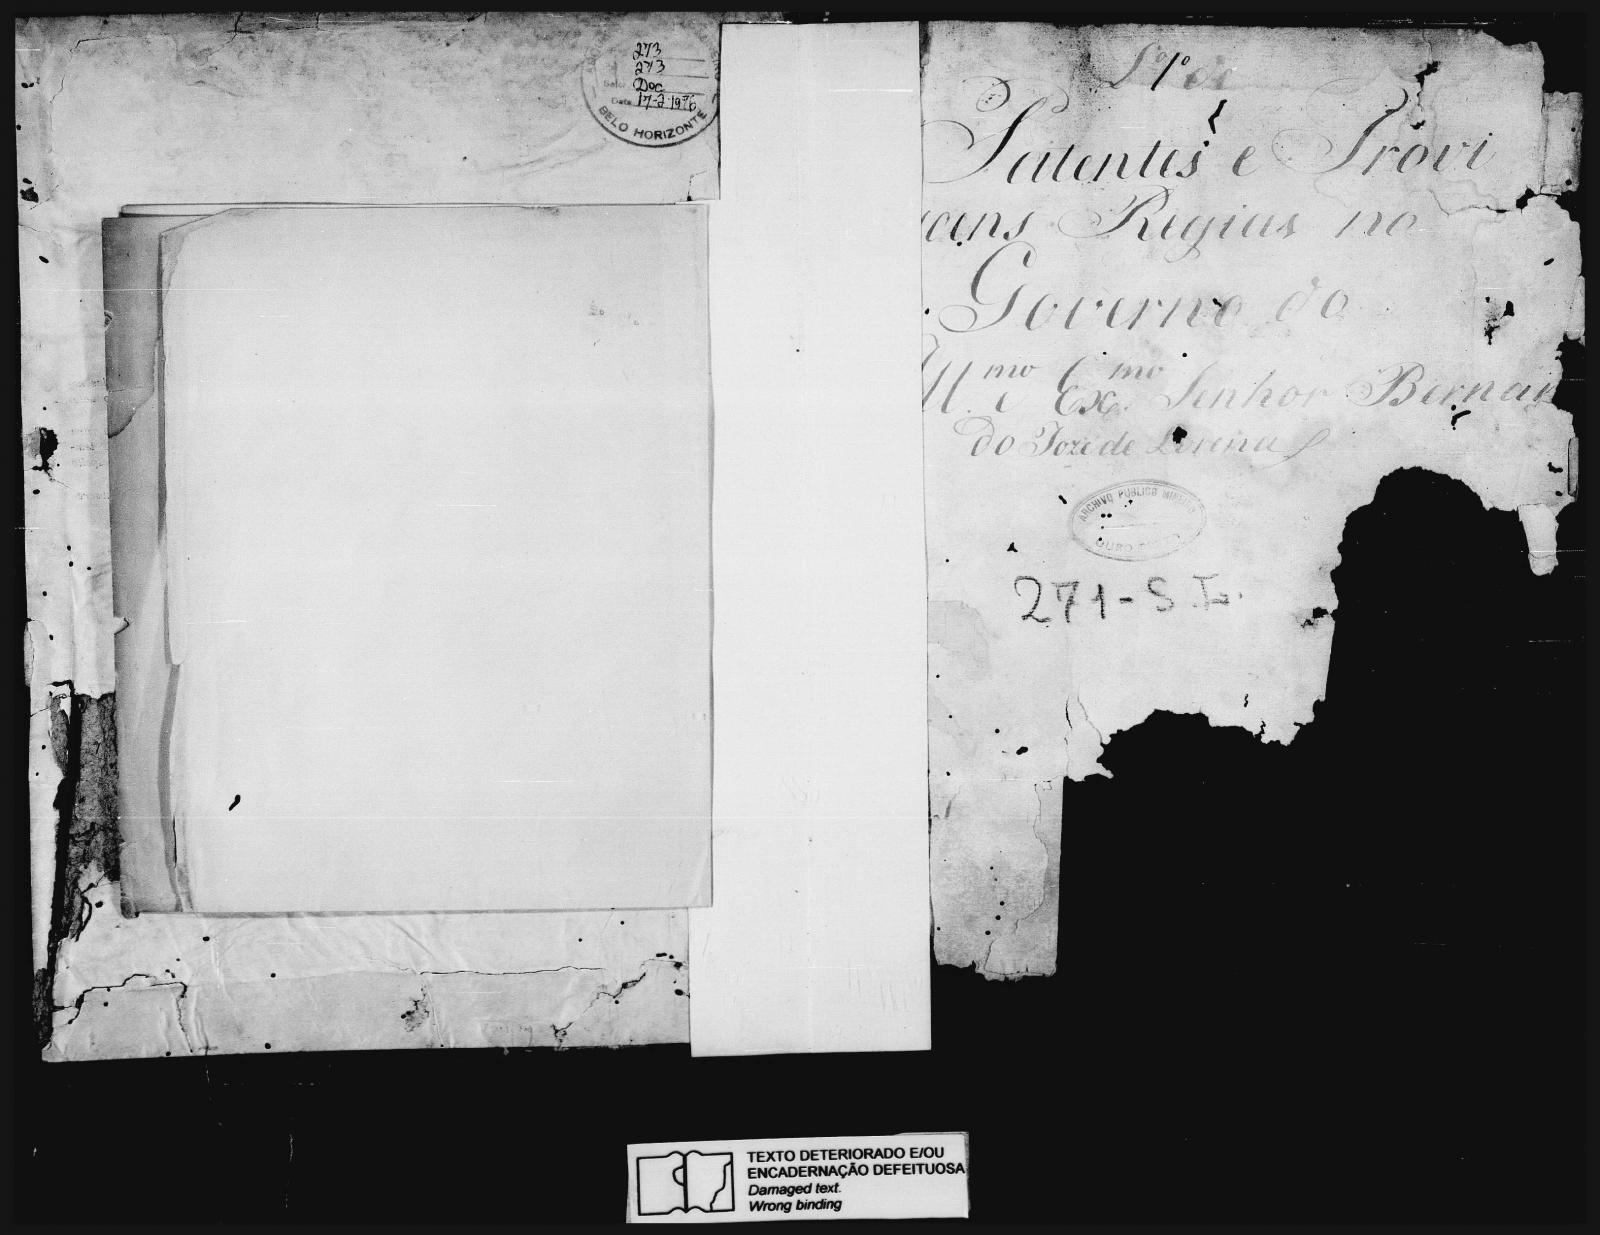 273
273
Doc
Data 17-2-1976
BELO HORIZONTE
L.º 1º de
Patentes e Provi
oens Regias no
Governo do
Ill.mo e Ex.mo Senhor Bernar
do Joze de Lorena
ARCHIVO PUBLICO MINEIRO
OURO PRETO
271-S.G.
TEXTO DETERIORADO E/OU
ENCADERNAÇÃO DEFEITUOSA
Damaged text.
Wrong binding